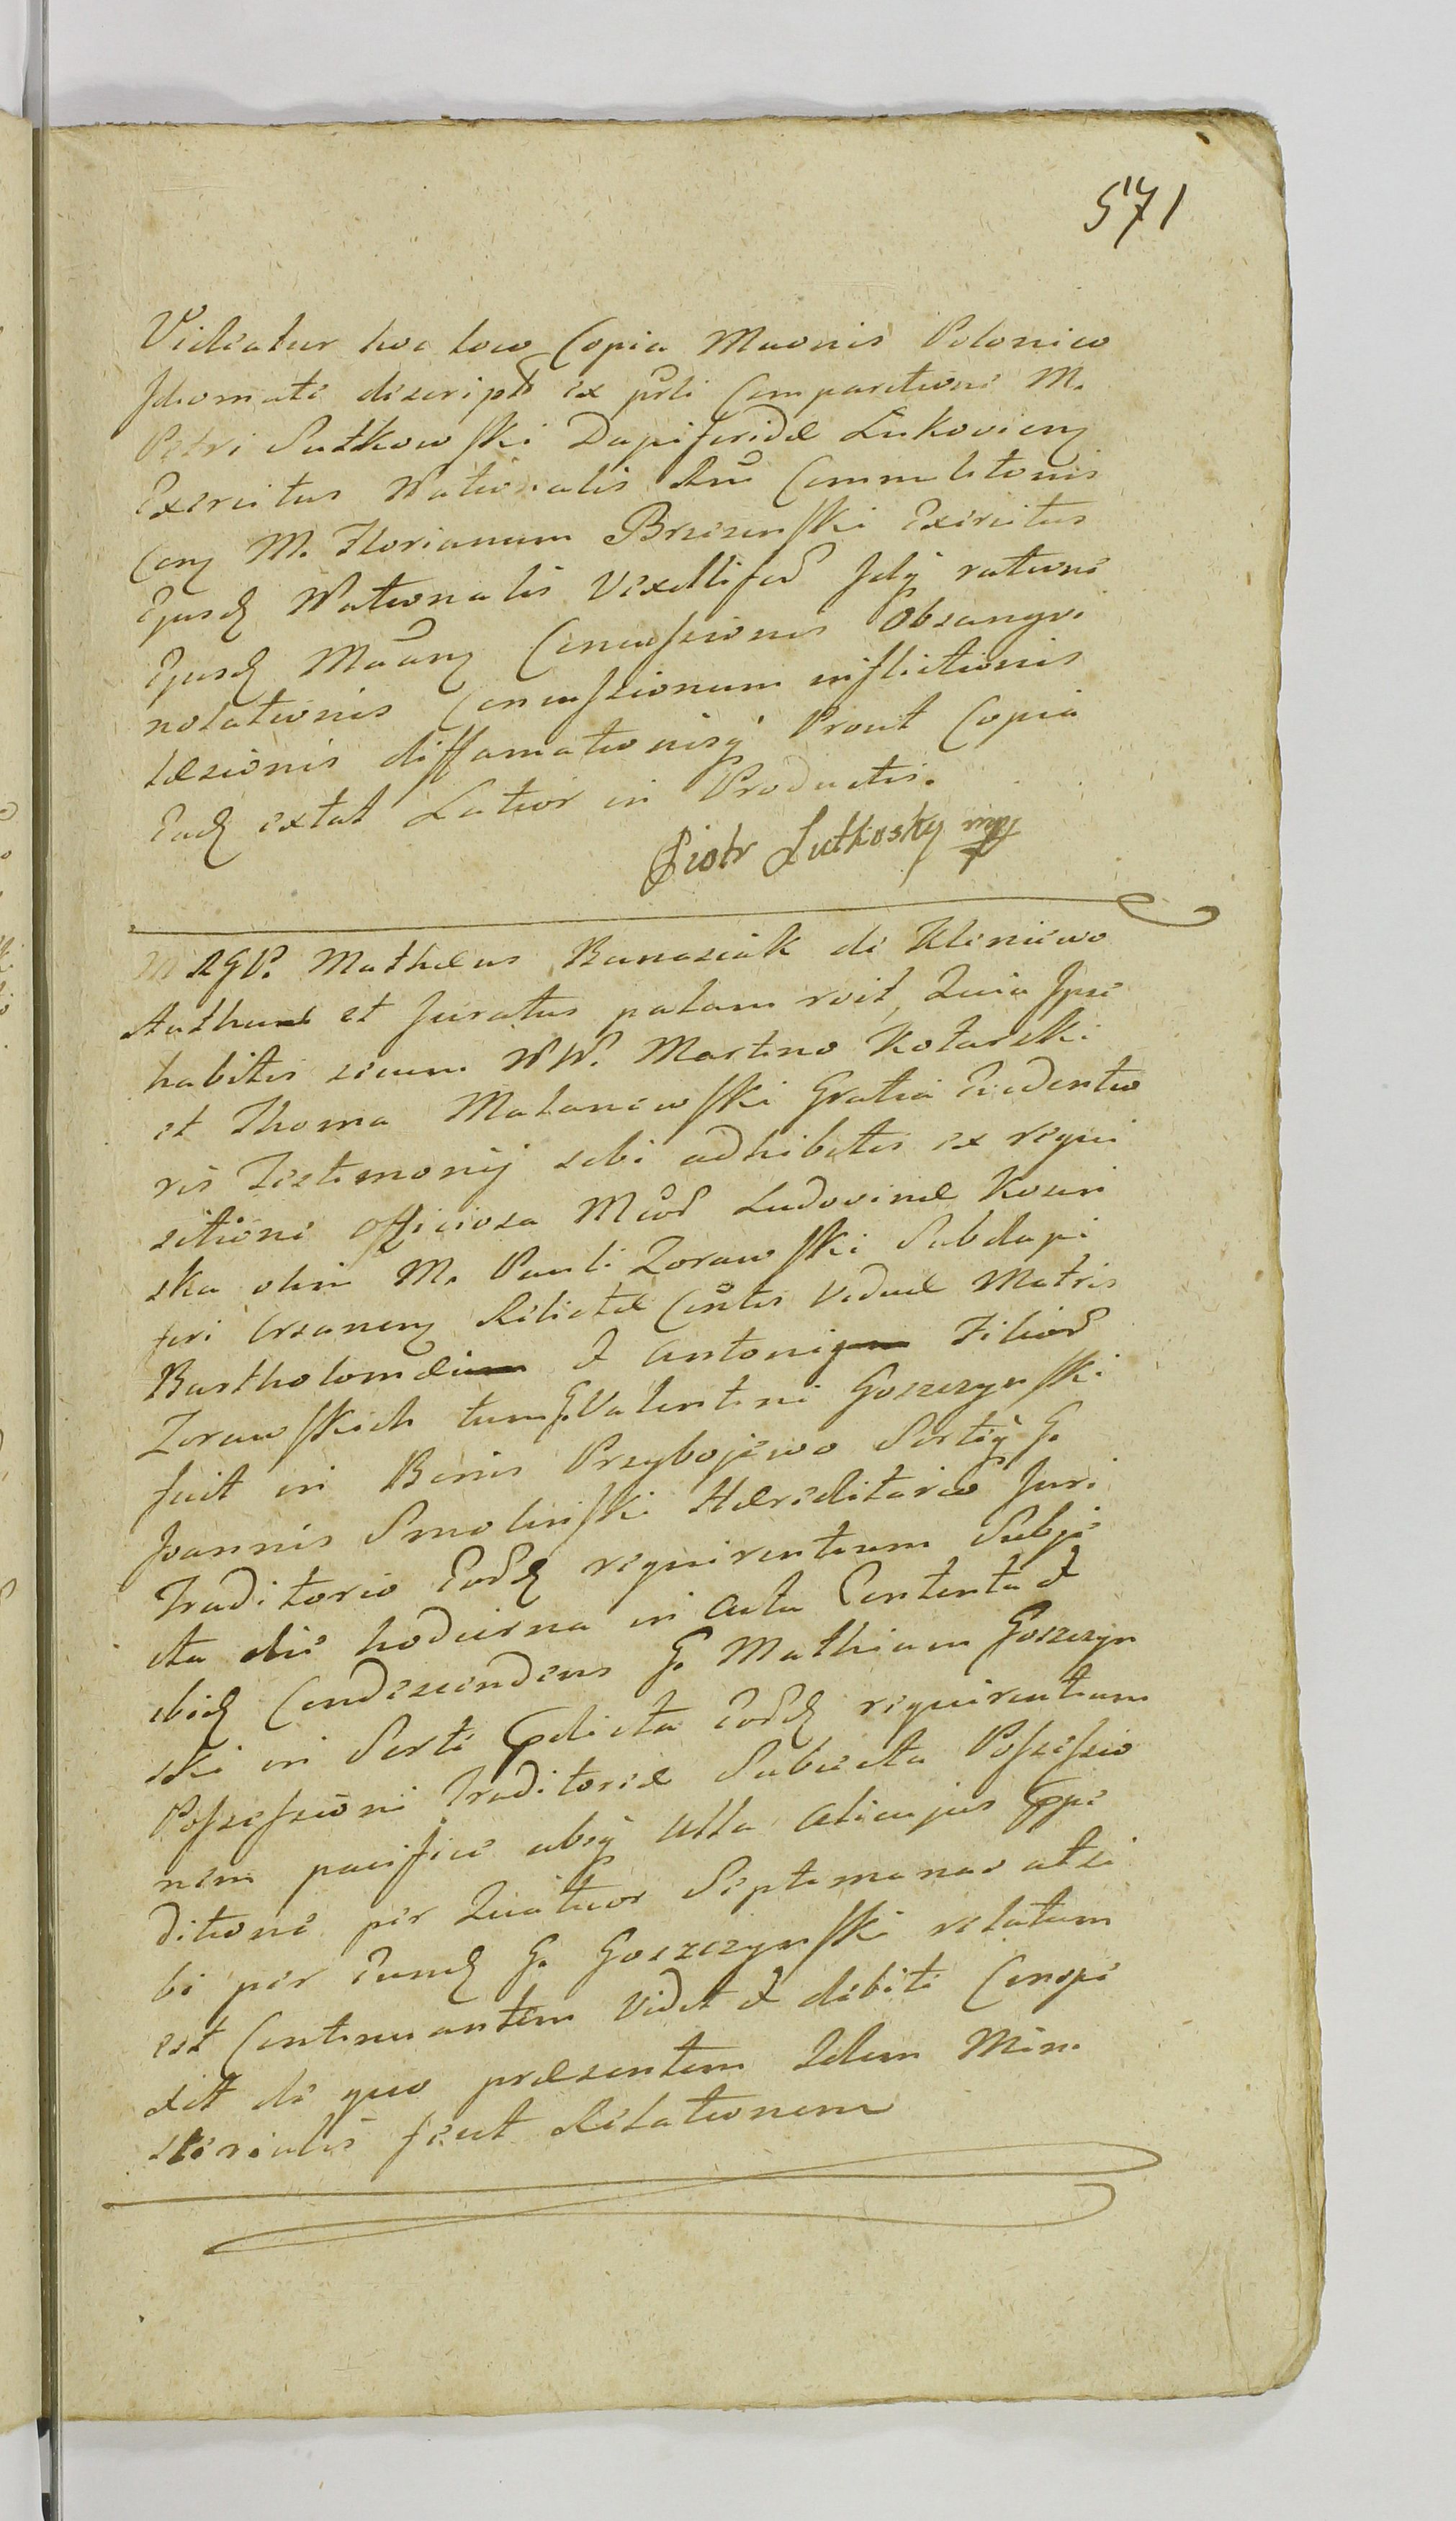 571
Videatur hoc loco Copia Mãonis Polonico
Idiomate descripta ex psti Comparitione M.
Petri Lutkowski Dapiferidæ Lukovien
Exercitus Nationalis Commilitonis
Con M. Florianum Brzezinski Exercitus
Ejusd Nationalis Vexelliferũ Idq ratione
Ejusd Concussionis Obsangvi
nolationis Concussionum inflictionis
læsionis diffamationisq Prout Copia
Ead extat Latior in Productis.
Piotr Lutkosky mp
M RGP. Mathæus Banasiak de Kliniewo
Authent et Juratus palam rcit, Quia Ipse
habitis secum NN. Martino Kotarski
et Thoma Malanowski Gratia Evidentio
ris Testimonij sibi adhibitis ex requi
sitione Officiosa Ludovinæ Kosin
ska olim M. Pauli Zorawski Subdapi
feri Crsanen Relictæ Viduæ Matris
Bartholomæi & Antonij Filior
Zorawskich tum G. Valentini Goszczynski
fuit in Bonis Przybojewo Sortis G.
Joannis Smolinski Hæreditario Juri
Traditorio Eord requirentium Subje
cta die hodierna in Acta Contenta &
ibid Condescendens G. Mathiam Goszczyn
ski in Sorte pdicta Eord requirentium
Possessioni Traditoriæ Subiecta Possessio
nem pacifice absq ulla alicujus Impe
ditione per Quatuor Septimanas ut si
bi per Eund G. Goszczynski relatum
est Continuantem Vidit & debite Conspe
xit de quo præsentem Idem Mini
sterialis fecit Relationem